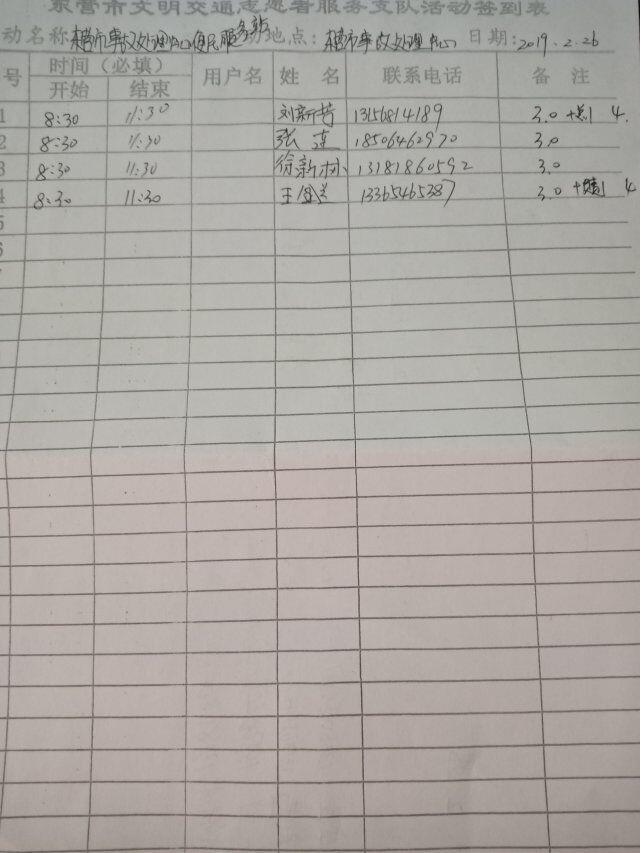 东营市文明交通志愿者服务支队活动签到表
动名称:东营市事故处理中心便民服务站 地点:东营市事故处理中心 日期:2019.2.26
号 时间(必填) 用户名 姓 名 联系电话 备 注
开始 结束
1 8:30 11:30 刘新芳 13156814189 3.0 4
2 8:30 11:30 张莲 18506462970 3.0
3 8:30 11:30 徐新树 13181860592 3.0
4 8:30 11:30 王 13365465387 3.0 4
5
6